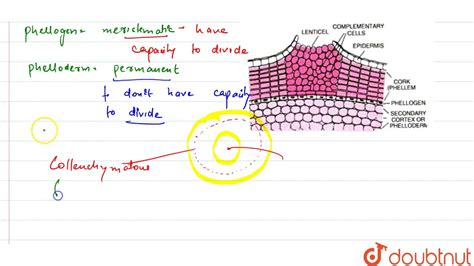 phellogen = merickmatic - have
capacity to divide
phelloderm = permanent
+ don't have capacity
to divide
Collenchymatous
LENTICEL
COMPLEMENTARY
CELLS
EPIDERMIS
CORK
(PHELLEM
PHELLOGEN
SECONDARY
CORTEX OR
PHELLODERM
doubtnut